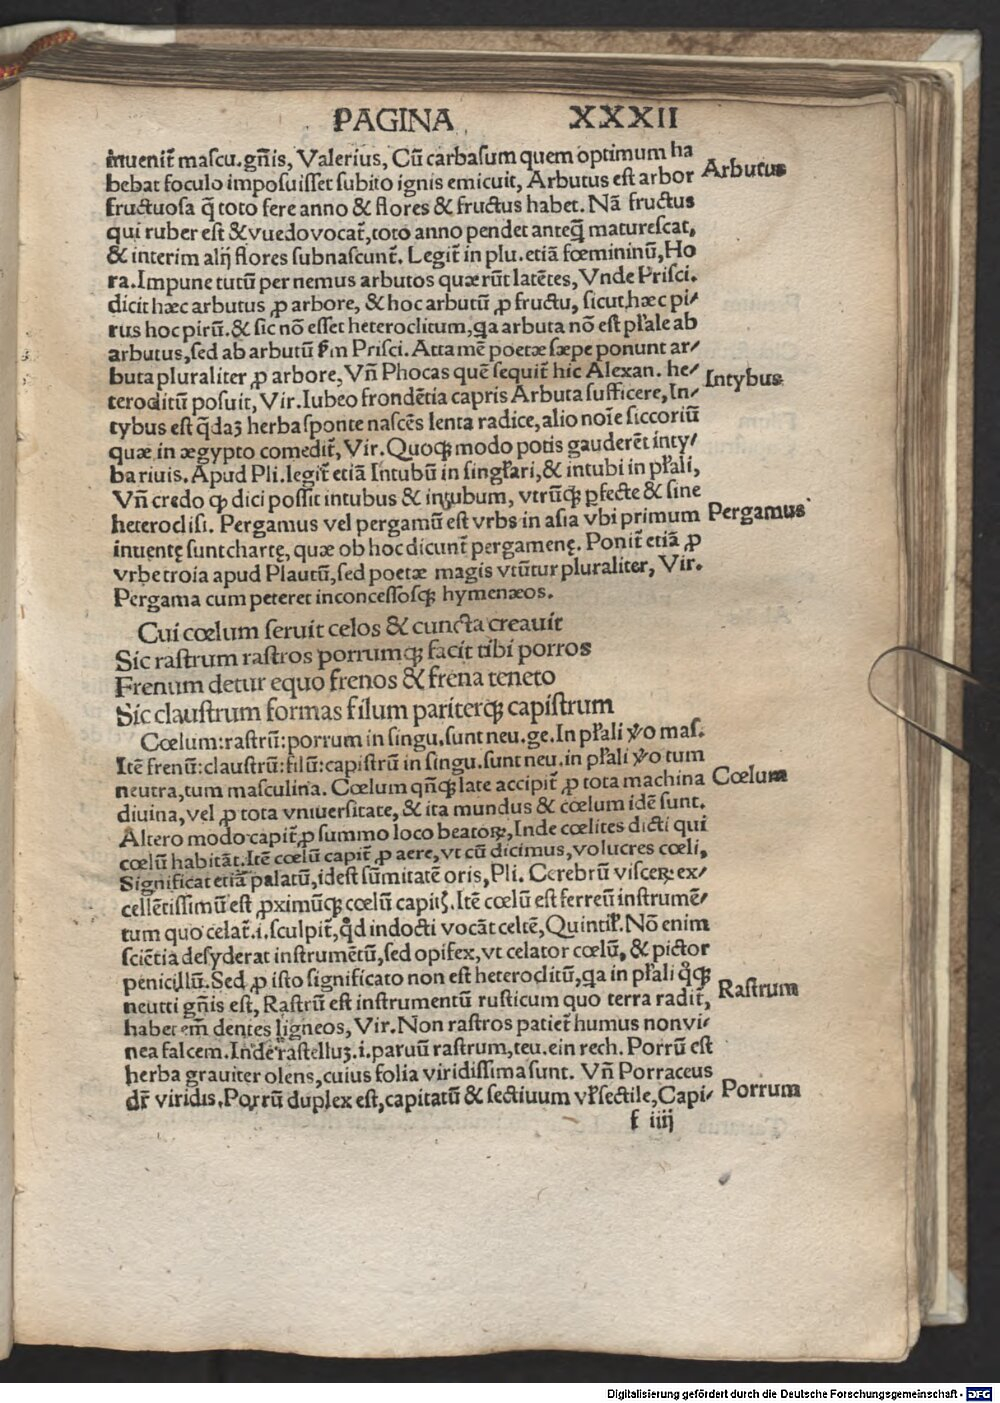 PAGINA XXXII
inuenit᷑ mascu. gn̄is, Valerius, Cū carbasum quem optimum ha
bebat foculo imposuisset subito ignis emicuit, Arbutus est arbor
Arbutus
fructuosa q̄ toto fere anno & flores & fructus habet. Nā fructus
qui ruber est & vuedo vocat᷑, toto anno pendet anteq̄ maturescat,
& interim alij flores subnascunt᷑. Legit᷑ in plu. etiā fœmininū, Ho
ra. Impune tutū per nemus arbutos quærūt latētes, Vnde Prisci.
dicit hæc arbutus ꝓ arbore, & hoc arbutū ꝓ fructu, sicut hæc pi⸗
rus hoc pirū. & sic nō esset heteroclitum, qa arbuta nō est pl̄rale ab
arbutus, sed ab arbutū ẜm Prisci. Attamē poetæ sæpe ponunt ar⸗
buta pluraliter ꝓ arbore, Vn̄ Phocas quē sequit᷑ hic Alexan. he⸗
teroclitū posuit, Vir. Iubeo frondētia capris Arbuta sufficere, In⸗
Intybus
tybus est q̄daꝫ herba sponte nascēs lenta radice, alio noīe siccoriū
quæ in ægypto comedit᷑, Vir. Quoqꝫ modo potis gauderēt inty⸗
ba riuis. Apud Pli. legit᷑ etiā Intubū in singl̄ari, & intubi in pl̄rali,
Vn̄ credo ꝙ dici possit intubus & intubum, vtrūqꝫ ꝑfecte & sine
heteroclisi. Pergamus vel pergamū est vrbs in asia vbi primum
Pergamus
inuentę sunt chartę, quæ ob hoc dicunt᷑ pergamenę. Ponit᷑ etiā ꝓ
vrbe troia apud Plautū, sed poetæ magis vtūtur pluraliter, Vir.
Pergama cum peteret inconcessosqꝫ hymenæos.
Cui cœlum seruit celos & cuncta creauit
Sic rastrum rastros porrumqꝫ facit tibi porros
Frenum detur equo frenos & frena teneto
Sic claustrum formas filum pariterqꝫ capistrum
Cœlum: rastrū: porrum in singu. sunt neu. ge. In pl̄rali ꝟo mas.
Itē frenū: claustrū: filū: capistrū in singu. sunt neu. in pl̄rali ꝟo tum
neutra, tum masculina. Cœlum qn̄qꝫ late accipit᷑ ꝓ tota machina
Cœlum
diuina, vel ꝓ tota vniuersitate, & ita mundus & cœlum idē sunt.
Altero modo capit᷑ ꝓ summo loco beatoꝝ, Inde cœlites dicti qui
cœlū habitāt. Itē cœlū capit᷑ ꝓ aere, vt cū dicimus, volucres cœli,
Significat etiā palatū, idest sūmitatē oris, Pli. Cerebrū visceꝝ ex⸗
cellētissimū est ꝓximūqꝫ cœlū capitꝭ. Itē cœlū est ferreū instrumē⸗
tum quo celat᷑. i. sculpit᷑, qd̄ indocti vocāt celtē, Quintil̄. Nō enim
sciētia desyderat instrumētū, sed opifex, vt celator cœlū, & pictor
penicillū. Sed ꝓ isto significato non est heteroclitū, qa in pl̄rali qͦqꝫ
neutri gn̄is est, Rastrū est instrumentū rusticum quo terra radit᷑,
Rastrum
habet em̄ dentes ligneos, Vir. Non rastros patiet᷑ humus non vi⸗
nea falcem. Inde rastelluꝫ. i. paruū rastrum, teu. ein rech. Porrū est
herba grauiter olens, cuius folia viridissima sunt. Vn̄ Porraceus
dr̄ viridis. Porrū duplex est, capitatū & sectiuum vl̄ sectile, Capi⸗
Porrum
f iiij
Digitalisierung gefördert durch die Deutsche Forschungsgemeinschaft - DFG